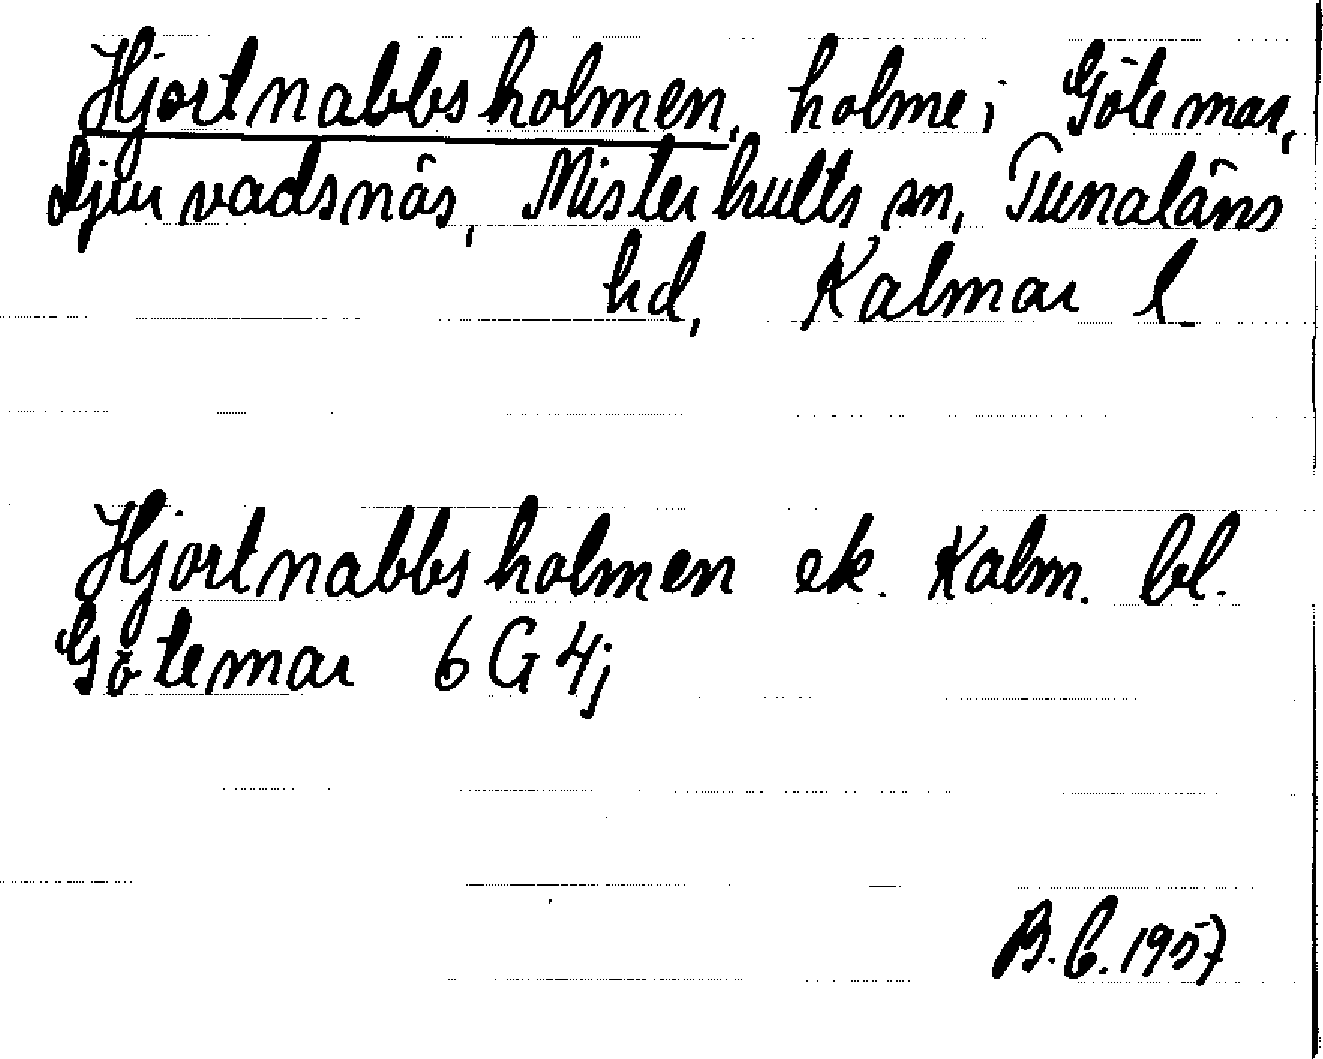 Hjortnabbsholmen, holme i Götemar,
Djurvadsnäs, Misterhults sn, Tunaläns
hd, Kalmar l
Hjortnabbsholmen ek. Kalm. bl.
Götemar 6 G 4j
B.C. 1957